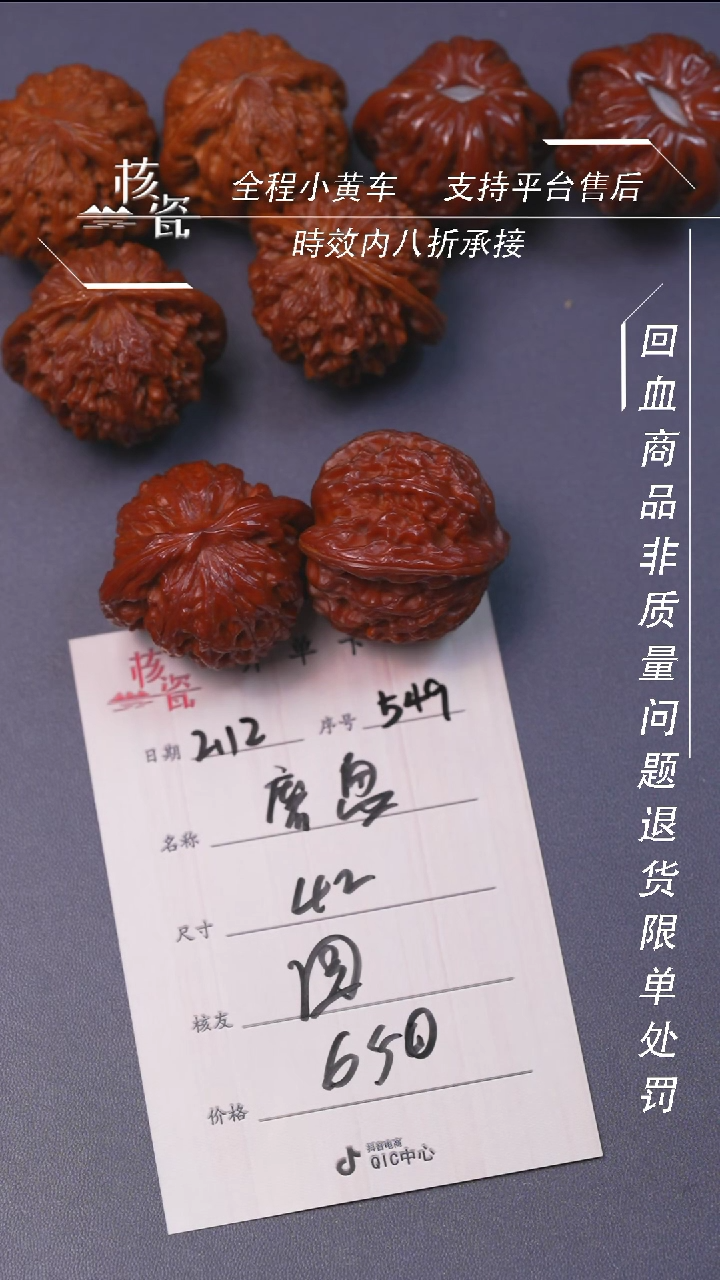 核瓷
全程小黄车 支持平台售后
時效内八折承接
回血商品非质量问题退货限单处罚
核瓷
单卡
日期 2.12 序号 549
名称 磨盘
尺寸 42
核友 圆
价格 650
抖音电商
QIC中心